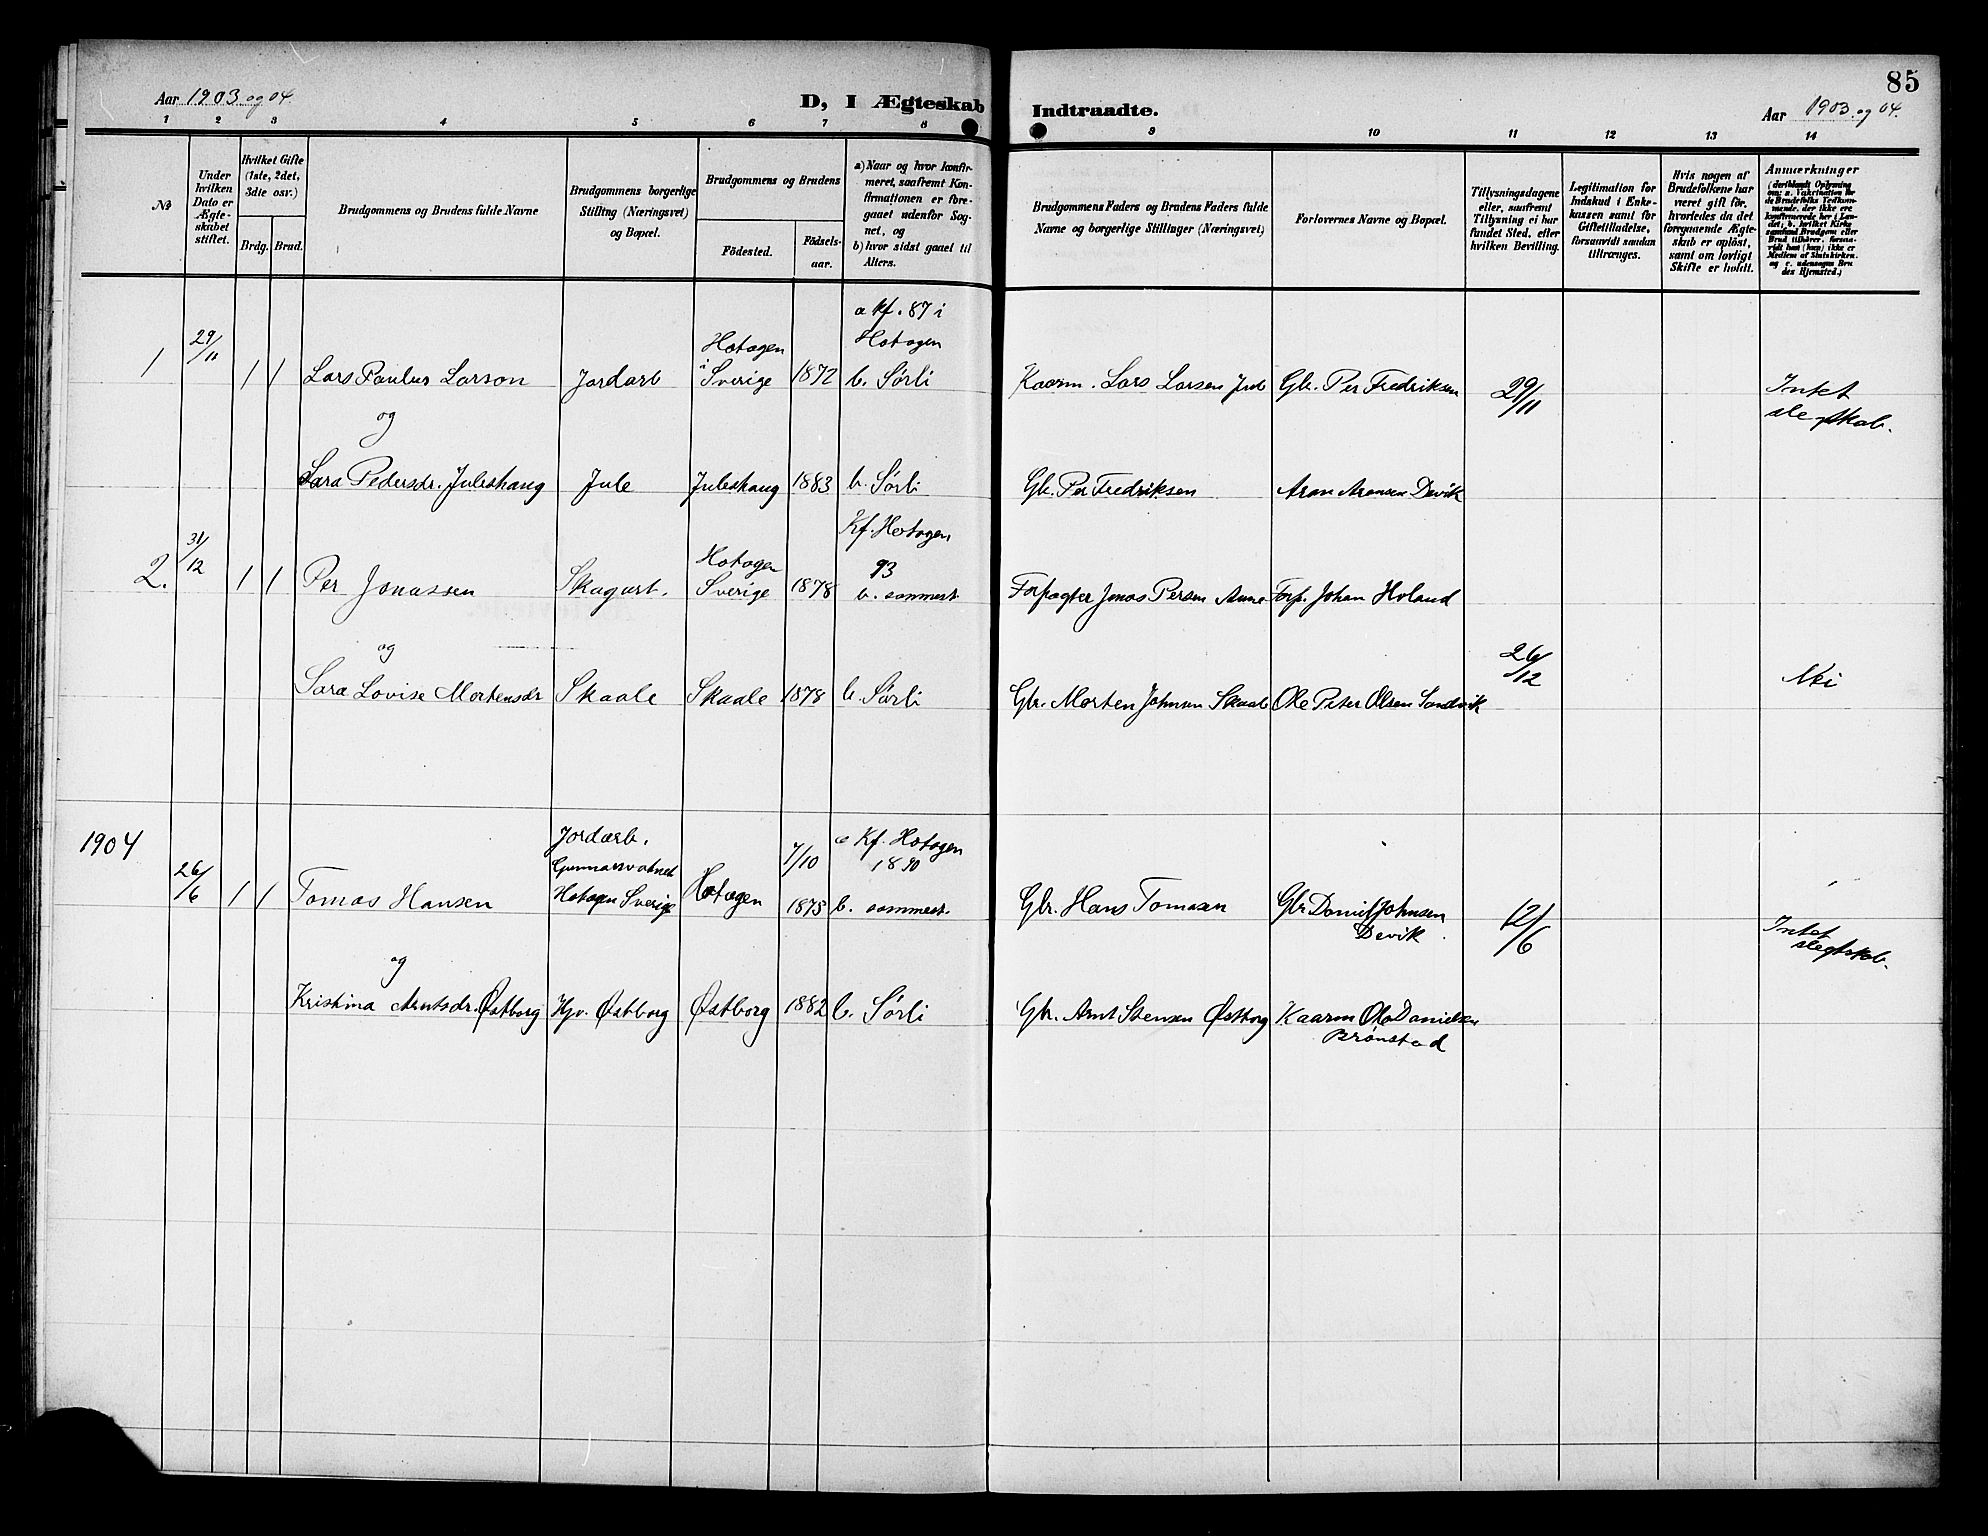 85
Aar 1903 og 04.
D, I Ægteskab Indtraadte.
Aar 1903 og 04.
1 2 3 4 5 6 7 8 9 10 11 12 13 14
№
Under
hvilken
Dato er
Ægte-
skabet
stiftet.
Hvilket Gifte
(1ste, 2det,
3die osv.)
Brdg. Brud.
Brudgommens og Brudens fulde Navne
Brudgommens borgerlige
Stilling (Næringsvet)
og Bopæl.
Brudgommens og Brudens
Födested.
Födsels-
aar.
a) Naar og hvor konfir-
meret, saafremt Kon-
firmationen er fore-
gaaet udenfor Sog-
net, og
b) hvor sidst gaaet til
Alters.
Brudgommens Faders og Brudens Faders fulde
Navne og borgerlige Stillinger (Næringsvet)
Forlovernes Navne og Bopæl.
Tillysningsdagene
eller, saafremt
Tillysning ei har
fundet Sted, efter
hvilken Bevilling.
Legitimation for
Indskud i Enke-
kassen samt for
Giftetilladelse,
forsaavidt saadan
tiltrænges.
Hvis nogen af
Brudefolkene har
været gift før,
hvorledes da det
foregaaende Ægte-
skab er opløst,
samt om lovligt
Skifte er holdt.
Anmærkninger
(deriblandt Oplysning
om: a. Vakcination for
de Brudefolks Vedkom-
mende, der ikke ere
konfirmerede her i Lan-
det, b. hvilket Kirke-
samfund Brudgom eller
Brud tilhører, forsaa-
vidt han (hun) ikke er
Medlem af Statskirken,
og c. udensogns Bru-
des Hjemsted.)
1 29/11 1 1 Lars Paulus Larson Jordarb Hotagen
i Sverige 1872 a Kf. 87 i
Hotagen
b. Sørli Kaarm. Lars Larsen Gb. Per Fredriksen 29/11 Intet
slegtskab.
og
Sara Pedersdr. Juleshaug Jule Juleshaug 1883 b. Sørli Gb. Per Fredriksen Aron Aronsen Devik
2. 31/12 1 1 Per Jonassen Skogarb. Hotagen
Sverige 1878 Kf. Hotagen
93
b. sammest. Forpagter Jonas Persen Forp. Johan Holand
og 26/12
Sara Lovise Mortensdr Skaale Skaale 1878 b. Sørli Gbr. Morten Johnsen Skaale Ole Peter Olsen Sandvik Nei
1904
26/6 1 1 Tomas Hansen Jordarb.
Gunnarsvatnet
Hotagen Sverige Hotagen 7/10
1875 a Kf. Hotagen
1890
b. sammest. Gbr. Hans Tomasen Gbr Daniel Johnsen
Devik 12/6 Intet
slegtskab.
og
Kristina Arntsdr. Østborg Hjv. Østborg Østborg 1882 b. Sørli Gbr. Arnt Stensen Østborg Kaarm Ole Danielsen
Brønstad